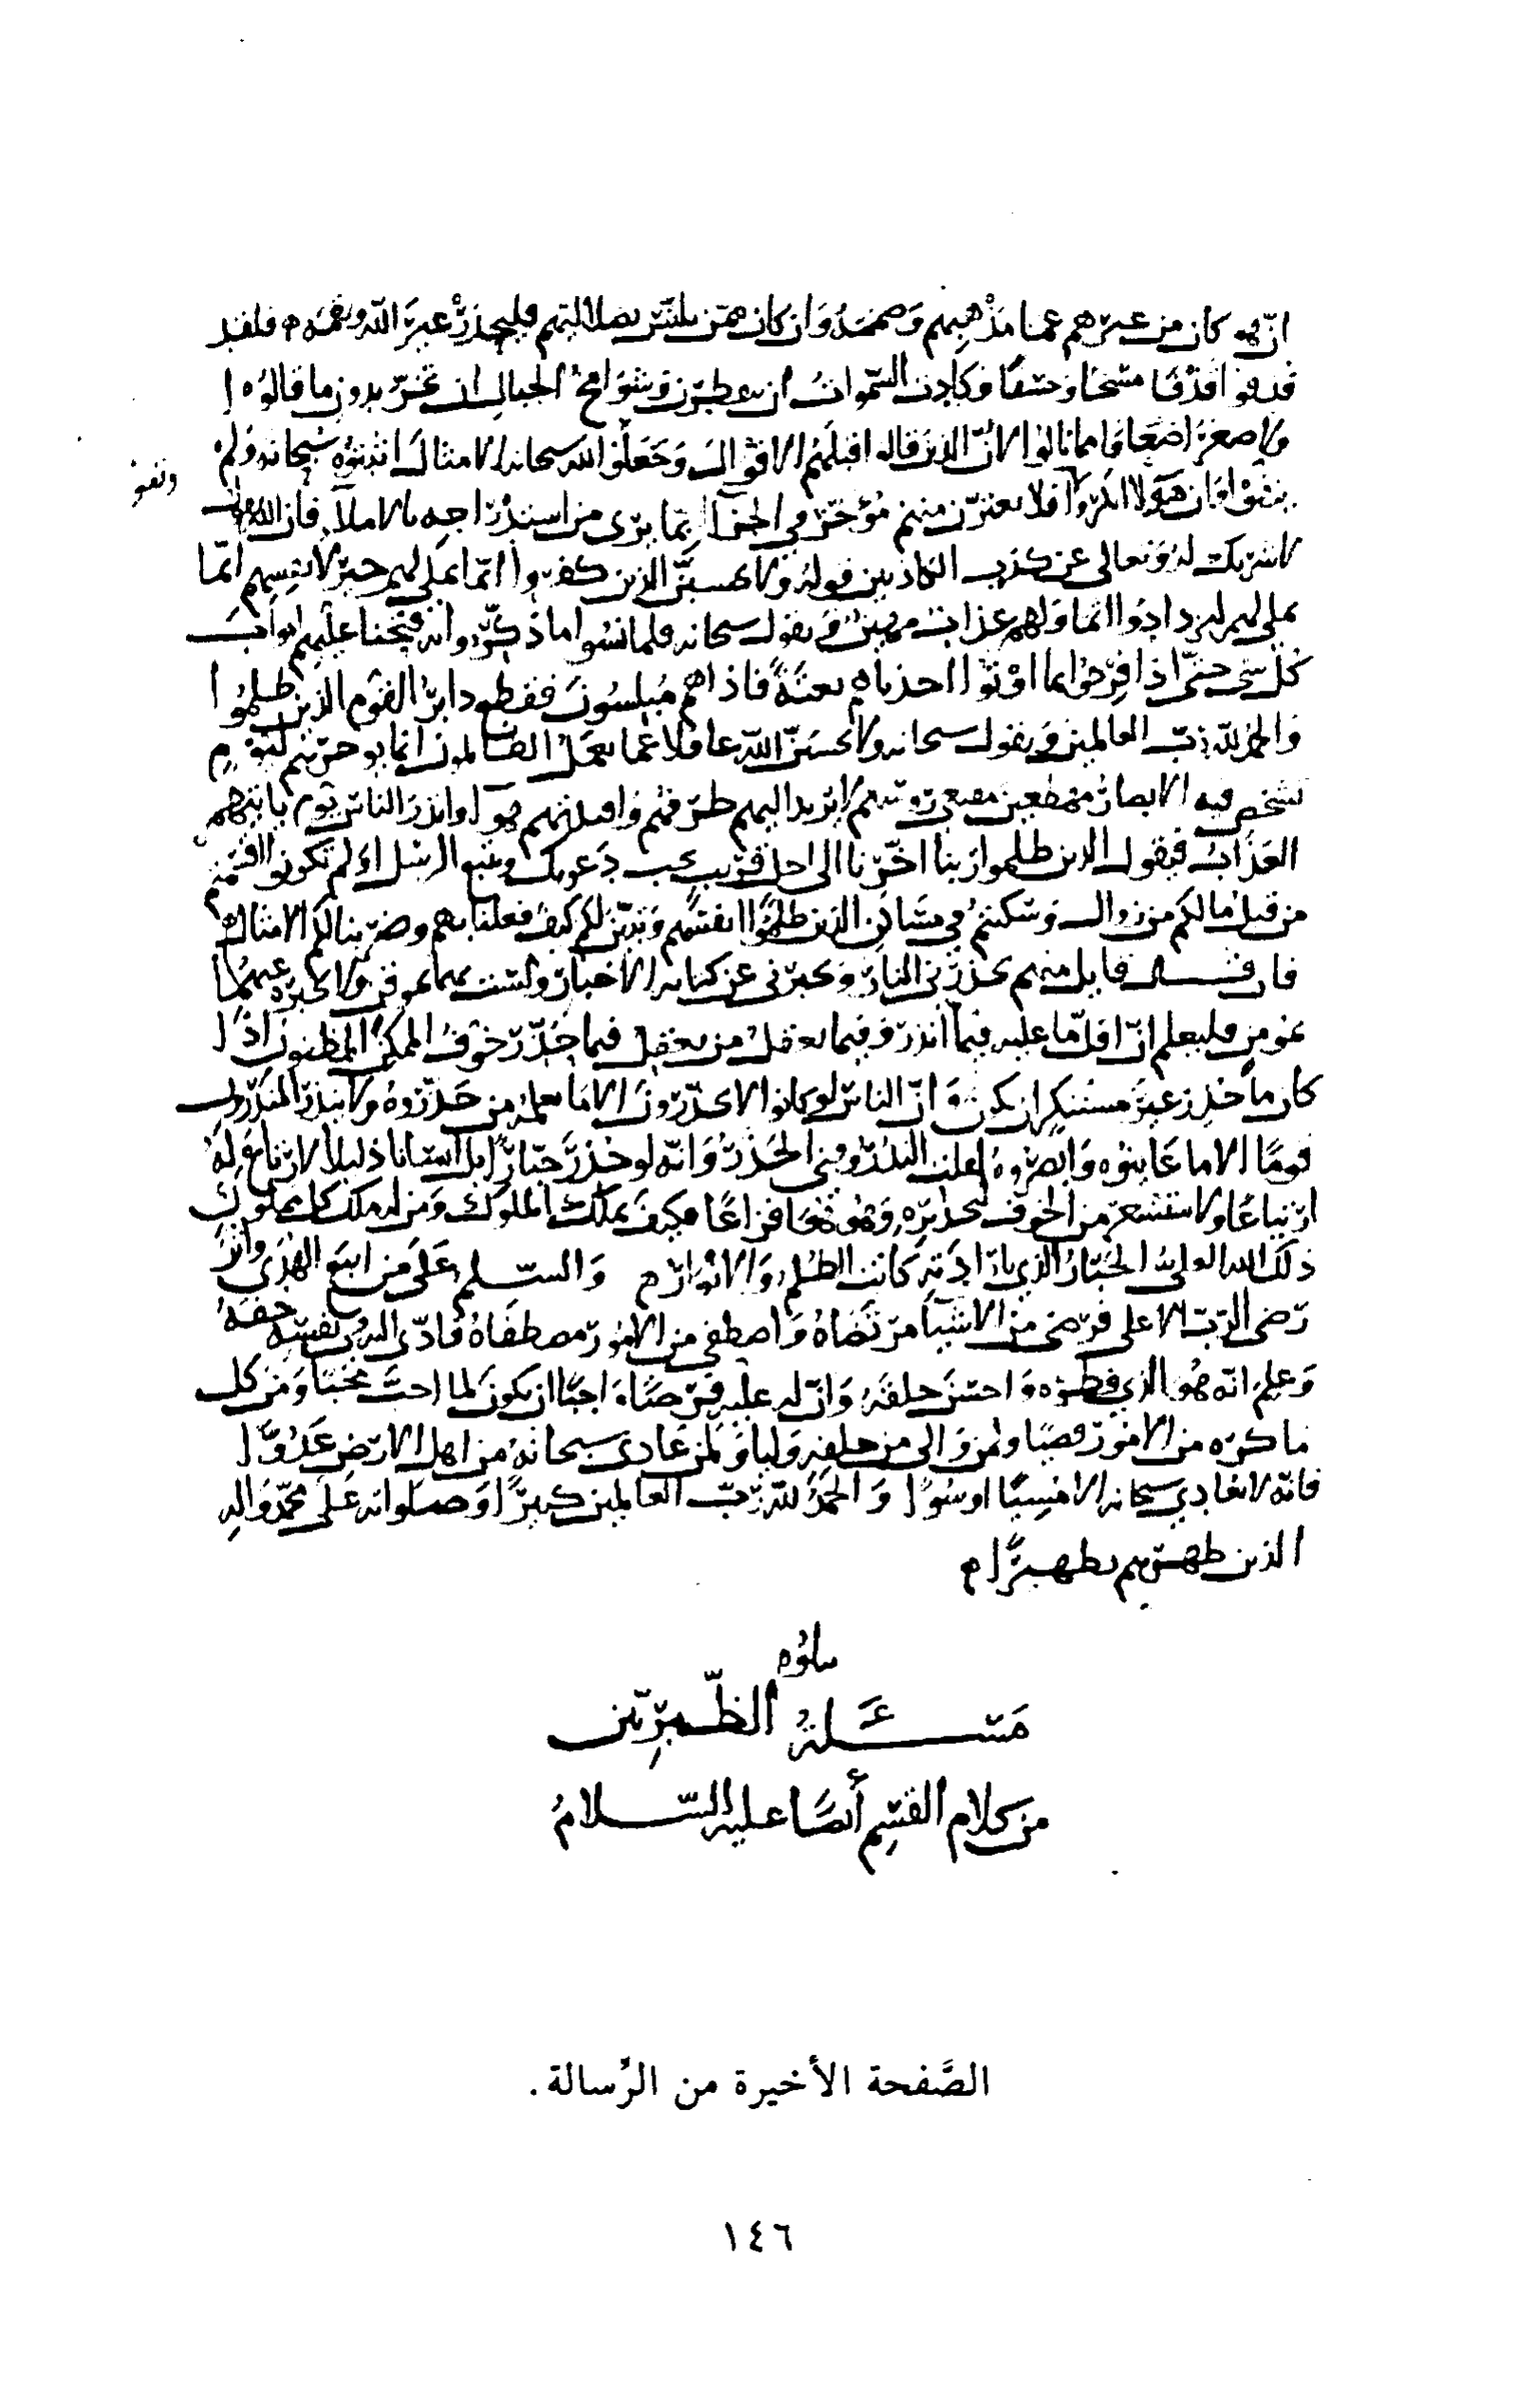 ان هو كان من غيرهم عما مذهبهم وصمته وان كان ممن يلتبس بضلالتهم فليحذر غير الله ونقمه فلقد
قدما مسخا وخسفا وكادت السموات ان يتفطرن وشوامخ الجبال ان تخر بدون ما قالوا
ولاصغر اضعافا ما نالوا الا ان الذين قالوا قبلهم الاقوال وجعلوا لله سبحانه الامثال اثبتوه سبحانه ولم
ونفو
ينفوا فان هولا انكروا فلا يغترن منهم مؤخر في الجزا بما يرى من استدراجه بالاملا فان الله يقول
لا شريك له وتعالى عن كذب الكاذبين قوله ولا يحسبن الذين كفروا انما نملي لهم خير لانفسهم انما
نملي لهم ليزدادوا اثما ولهم عذاب مهين ويقول سبحانه فلما نسوا ما ذكروا به فتحنا عليهم ابواب
كل شي حتى اذا فرحوا بما اوتوا اخذناهم بغتة فاذا هم مبلسون فقطع دابر القوم الذين ظلموا
والحمد لله رب العالمين ويقول سبحانه ولا تحسبن الله غافلا عما يعمل الظالمون انما يوخرهم ليوم
تشخص فيه الابصار مهطعين مقنعي رؤسهم لا يرتد اليهم طرفهم وافئدتهم هوآ وانذر الناس يوم ياتيهم
العذاب فيقول الذين ظلموا ربنا اخرنا الى اجل قريب نجب دعوتك ونتبع الرسل اولم تكونوا اقسمتم
من قبل ما لكم من زوال وسكنتم في مساكن الذين ظلموا انفسهم وتبين لكم كيف فعلنا بهم وضربنا لكم الامثال
فان قال قايل منهم يحذرني النار ويخبرني عن كتابه الاخبار ولست بهما بموقن ولا بخبره عنهما
بمومن فليعلم ان اقل ما عليه فيما انذر وفيما يعقل من يعقل فيما حذر خوف الممكن المظنون اذا
كان ما حذر غير مستنكر ان يكون وان الناس لو كانوا لا يحذرون الا ما يعلمه من حذروه ولا ينذر المنذرون
قوما الا ما عاينوه وابصروه لقلت النذر وفني الحذر وانه لو حذر جبارا بل انسانا ذليلا لارتاع له
ارتياعا ولاستشعر من الخوف لتحذيره وهوفا افزاعا فكيف بملك الملوك ومن له ملك كل مملوك
ذلك الله العلي الجبار الذي بارادته كانت الظلم والانوار والسلم على من اتبع الهدى واثر
رضى الرب الاعلى فرضي من الاشيا مرتضاه واصطفى من الامور مصطفاه فادى اليه من نفسه حقه
وعلم انه هو الذي فطره واحسن خلقه وان له عليه فرضا واجبا ان يكون لما احب محبا ومن كل
ما كره من الامور قصيا ولمن والى من خلقه وليا ولمن عادى سبحانه من اهل الارض عدوا
فانه لا يعادي سبحانه الا مسيئا او سوا والحمد لله رب العالمين كثيرا وصلواته على محمد واله
الذين طهرهم تطهيرا
يتلوه
مسئلة الطبريين
من كلام القسم أيضا عليه السلام
الصَّفحة الأخيرة من الرِّسالة .
١٤٦